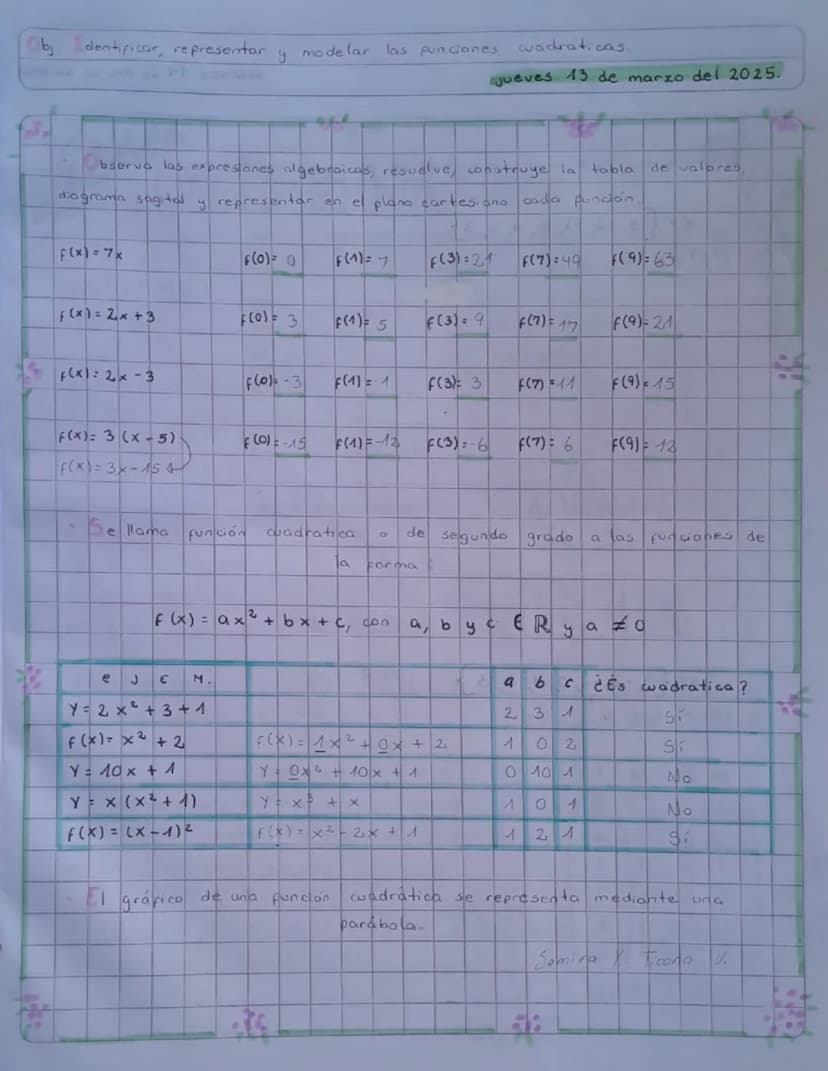 Obj Identificar, representar y modelar las funciones cuadraticas.
jueves 13 de marzo del 2025.
· Observa las expresiones algebraicas, resuelve, construye la tabla de valores,
diagrama sagital y representar en el plano cartesiano cada función.
f(x) = 7x f(0) = 0 f(1) = 7 f(3) = 21 f(7) = 49 f(9) = 63
f(x) = 2x + 3 f(0) = 3 f(1) = 5 f(3) = 9 f(7) = 17 f(9) = 21
f(x) = 2x - 3 f(0) = -3 f(1) = -1 f(3) = 3 f(7) = 11 f(9) = 15
f(x) = 3 (x - 5) f(0) = -15 f(1) = -12 f(3) = -6 f(7) = 6 f(9) = 12
f(x) = 3x - 15
· Se llama función cuadratica o de segundo grado a las funciones de
la forma:
f(x) = ax² + bx + c, con a, b y c ∈ ℝ y a ≠ 0
e J E M. a b c ¿Es cuadratica?
Y = 2x² + 3 + 1 2 3 1 Sí
f(x) = x² + 2 f(x) = 1x² + 0x + 2 1 0 2 Sí
Y = 10x + 1 Y = 0x² + 10x + 1 0 10 1 No
Y = x (x² + 1) Y = x³ + x 1 0 1 No
f(x) = (x - 1)² f(x) = x² - 2x + 1 1 2 1 Sí
· El gráfico de una función cuadrática se representa mediante una
parábola.
Samira Y. Ticona V.